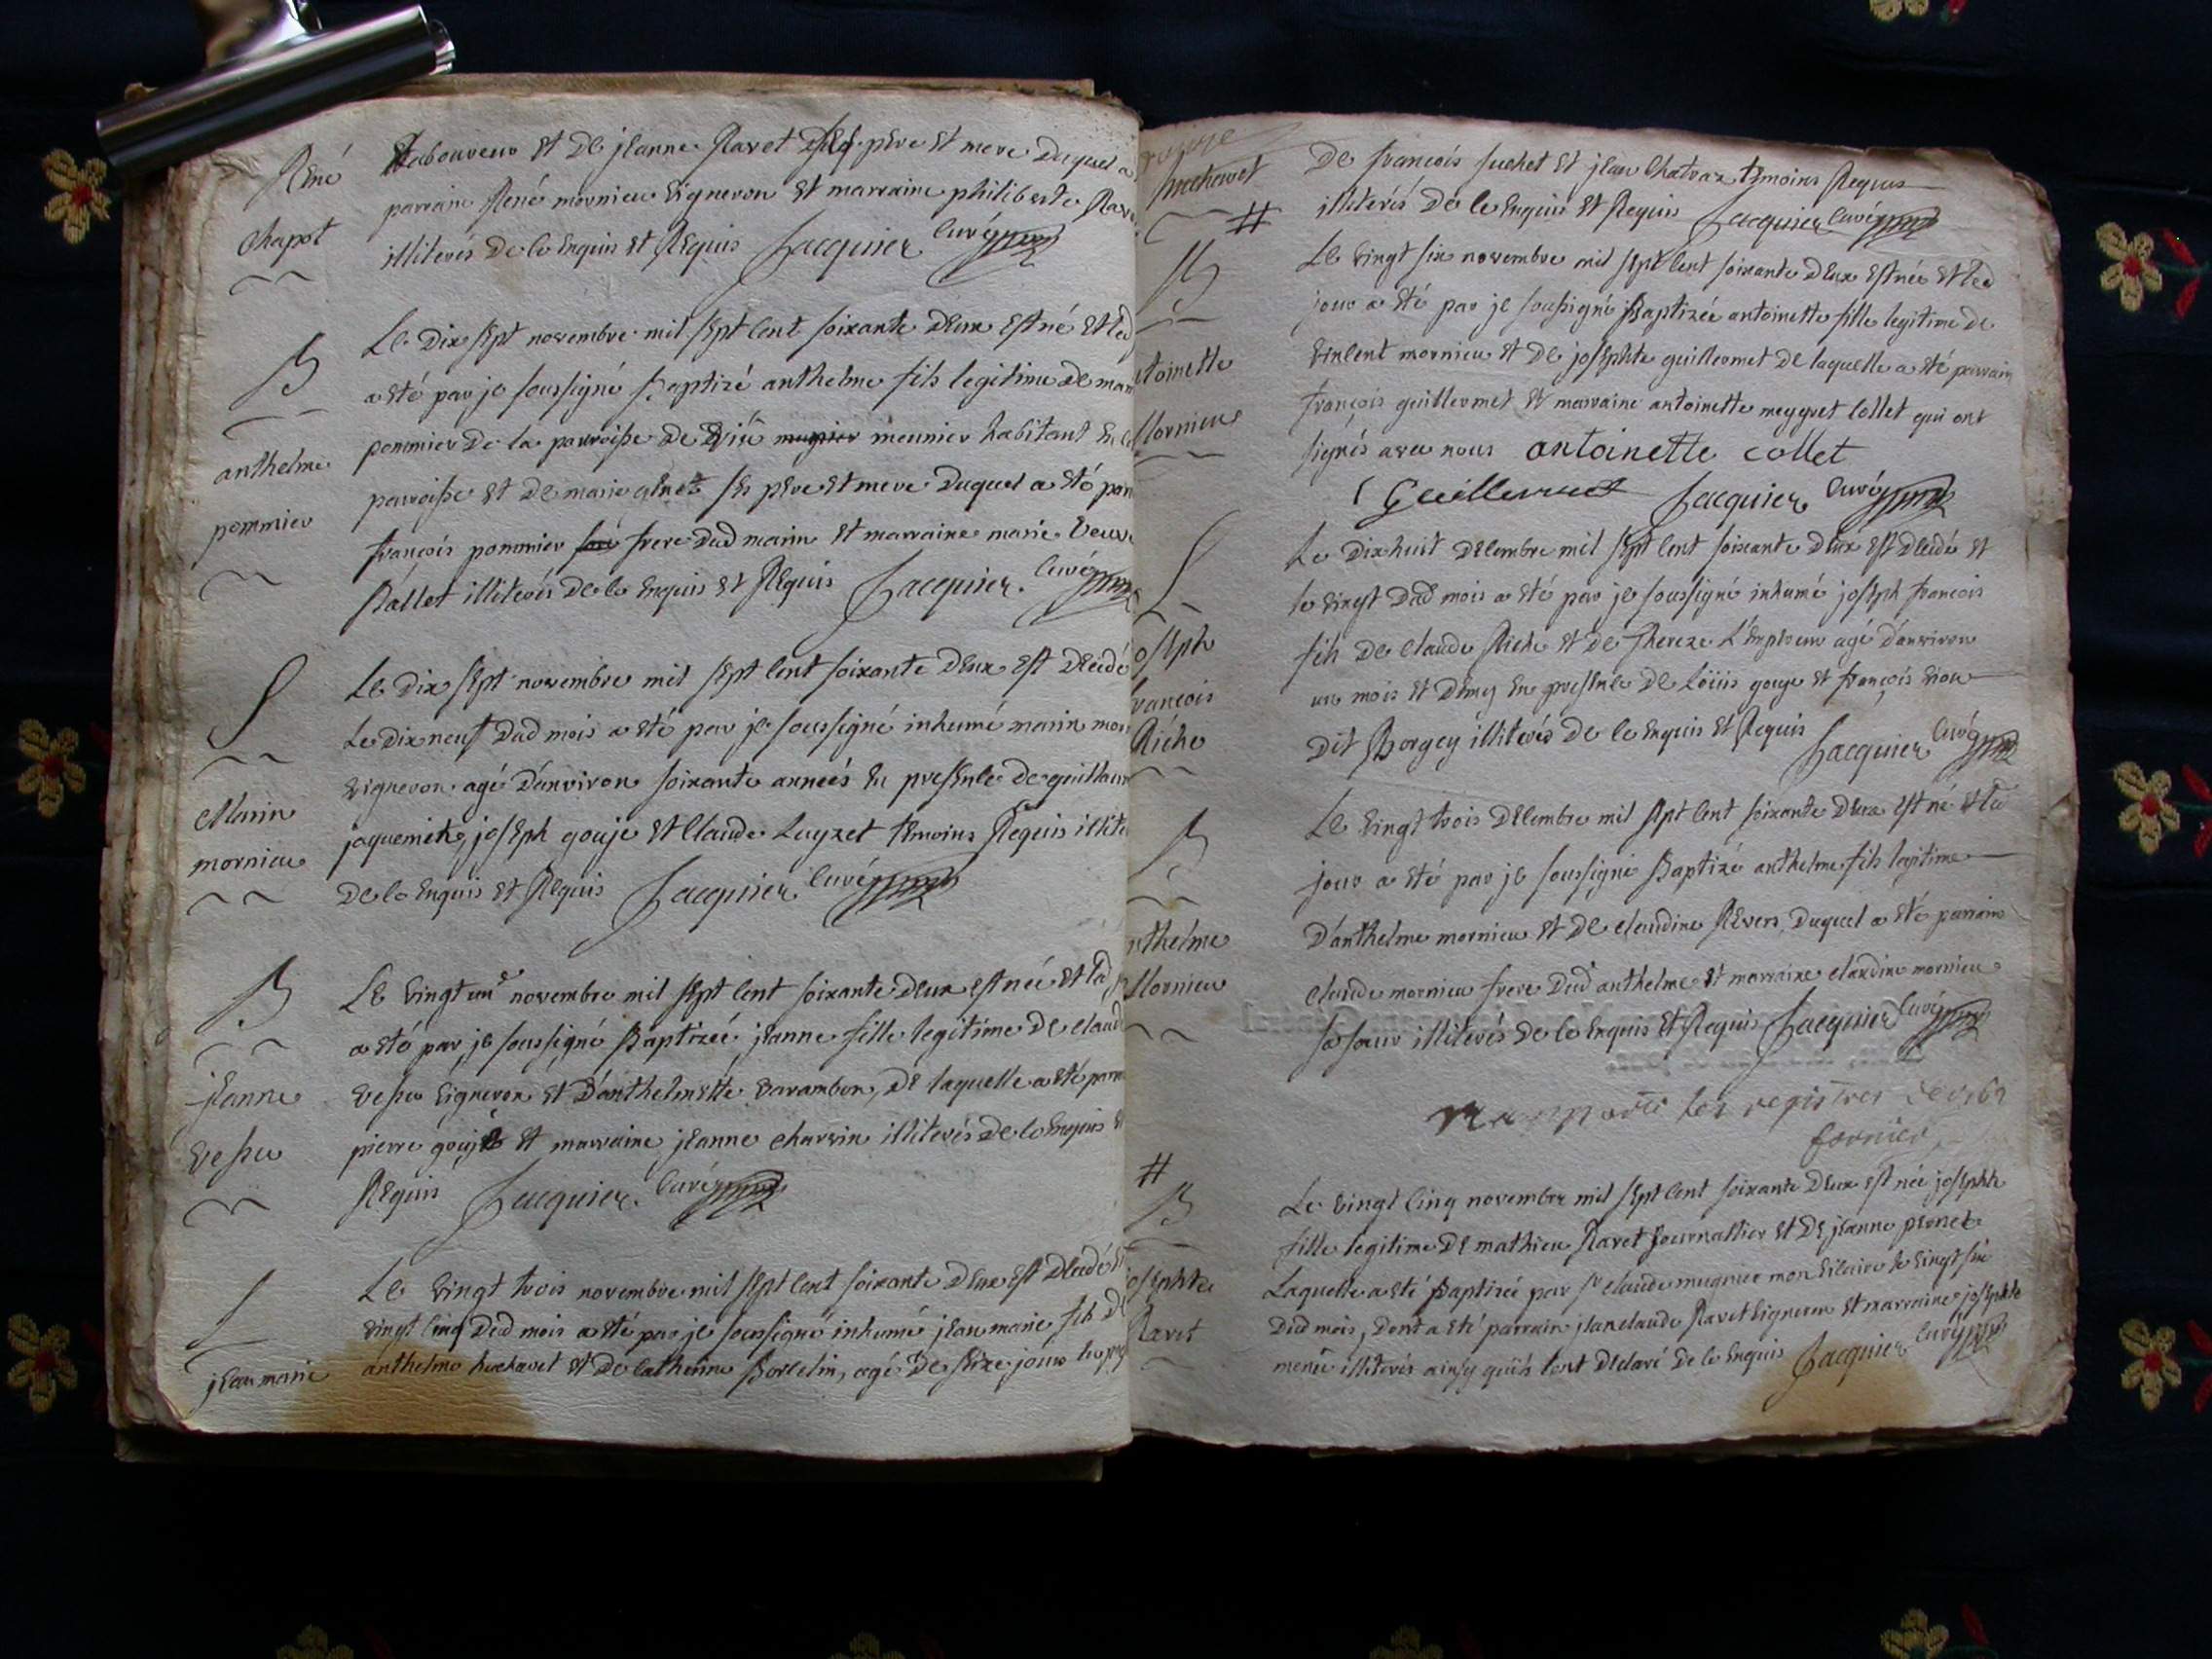 René
Chapot
Laboureur et de jeanne Ravet ses pere et mere duquel a
parrain René mornieu vigneron et marraine philiberte Rav
illiterés de ce Enquis et Requis Jacquier Curé
B
anthelme
pommier
Le dix sept novembre mil sept cent soixante deux est né et led
a eté par je soussigné Baptizé anthelme fils legitime de mar
pommier de la parroisse de meunier habitant en ce
parroisse et de marie ses pere et mere duquel a eté par
françois pommier frere dud marin et marraine marie veuve
Ballet illiterés de ce Enquis et Requis Jacquier Curé
S
Marin
mornieu
Le dix sept novembre mil sept cent soixante deux est decidé
Le dix neuf dud mois a eté par je soussigné inhumé marin mor
vigneron agé d'anviron soixante années en presence de guillaum
joseph gouje et Claude Luyzet temoins Requis illite
de ce Enquis et Requis Jacquier Curé
B
jeanne
vessu
Le vingt un novembre mil sept cent soixante deux est née et lad
a eté par je soussigné Baptizée jeanne fille legitime de claud
vessu vigneron et d'anthelmette varambon, de laquelle a eté parra
pierre goujé et marraine jeanne charvin illiterés de ce Enquis et
Requis Jacquier Curé
S
jean marie
Le vingt trois novembre mil sept cent soixante deux est decidé et
vingt cinq dud mois a eté par je soussigné inhumé jean marie fils de
anthelme huchavet et de Catherine Borcelin, agé de seize jours
De françois suchet et jean Chatraz temoins Requis
illiterés de ce Enquis et Requis Jacquier Curé
#
B
toinette
Mornieu
Le vingt six novembre mil sept cent soixante deux est née et led
jour a eté par je soussigné Baptizée antoinette fille legitime de
vincent mornieu et de josephte guillermet de laquelle a eté parrain
françois guillermet et marraine antoinette meygret Collet qui ont
signés avec nous antoinette collet
f Guillermet Jacquier Curé
S
oseph
rançois
Riche
Le dix huit decembre mil sept cent soixante deux est decidé et
le vingt dud mois a eté par je soussigné inhumé joseph françois
fils de claude Riche et de thereze L'Empleur agé d'anviron
un mois et demy en presence de Loüis gouje et françois
dit Borgey illiterés de ce Enquis et Requis Jacquier Curé
B
nthelme
Mornieu
Le vingt trois decembre mil sept cent soixante deux est né et led
jour a eté par je soussigné Baptizé anthelme fils legitime
D'anthelme mornieu et de claudine Revers, duquel a eté parrain
claude mornieu frere dud anthelme et marraine claudine mornieu
sa sœur illiterés de ce Enquis et Requis Jacquier Curé
Rapporté les registres de 1762
fornier
#
B
josephte
Ravet
Le vingt cinq novembre mil sept cent soixante deux est née josephte
fille legitime de mathieu Ravet journallier et de jeanne pernet
Laquelle a eté Baptizée par sr claude mugnier mon vicaire le vingt six
Dud mois, dont a eté parrain jean claude Ravet vigneron et marraine josephte
illiterés ainsy qu'ils l'ont declaré de ce Enquis Jacquier Curé